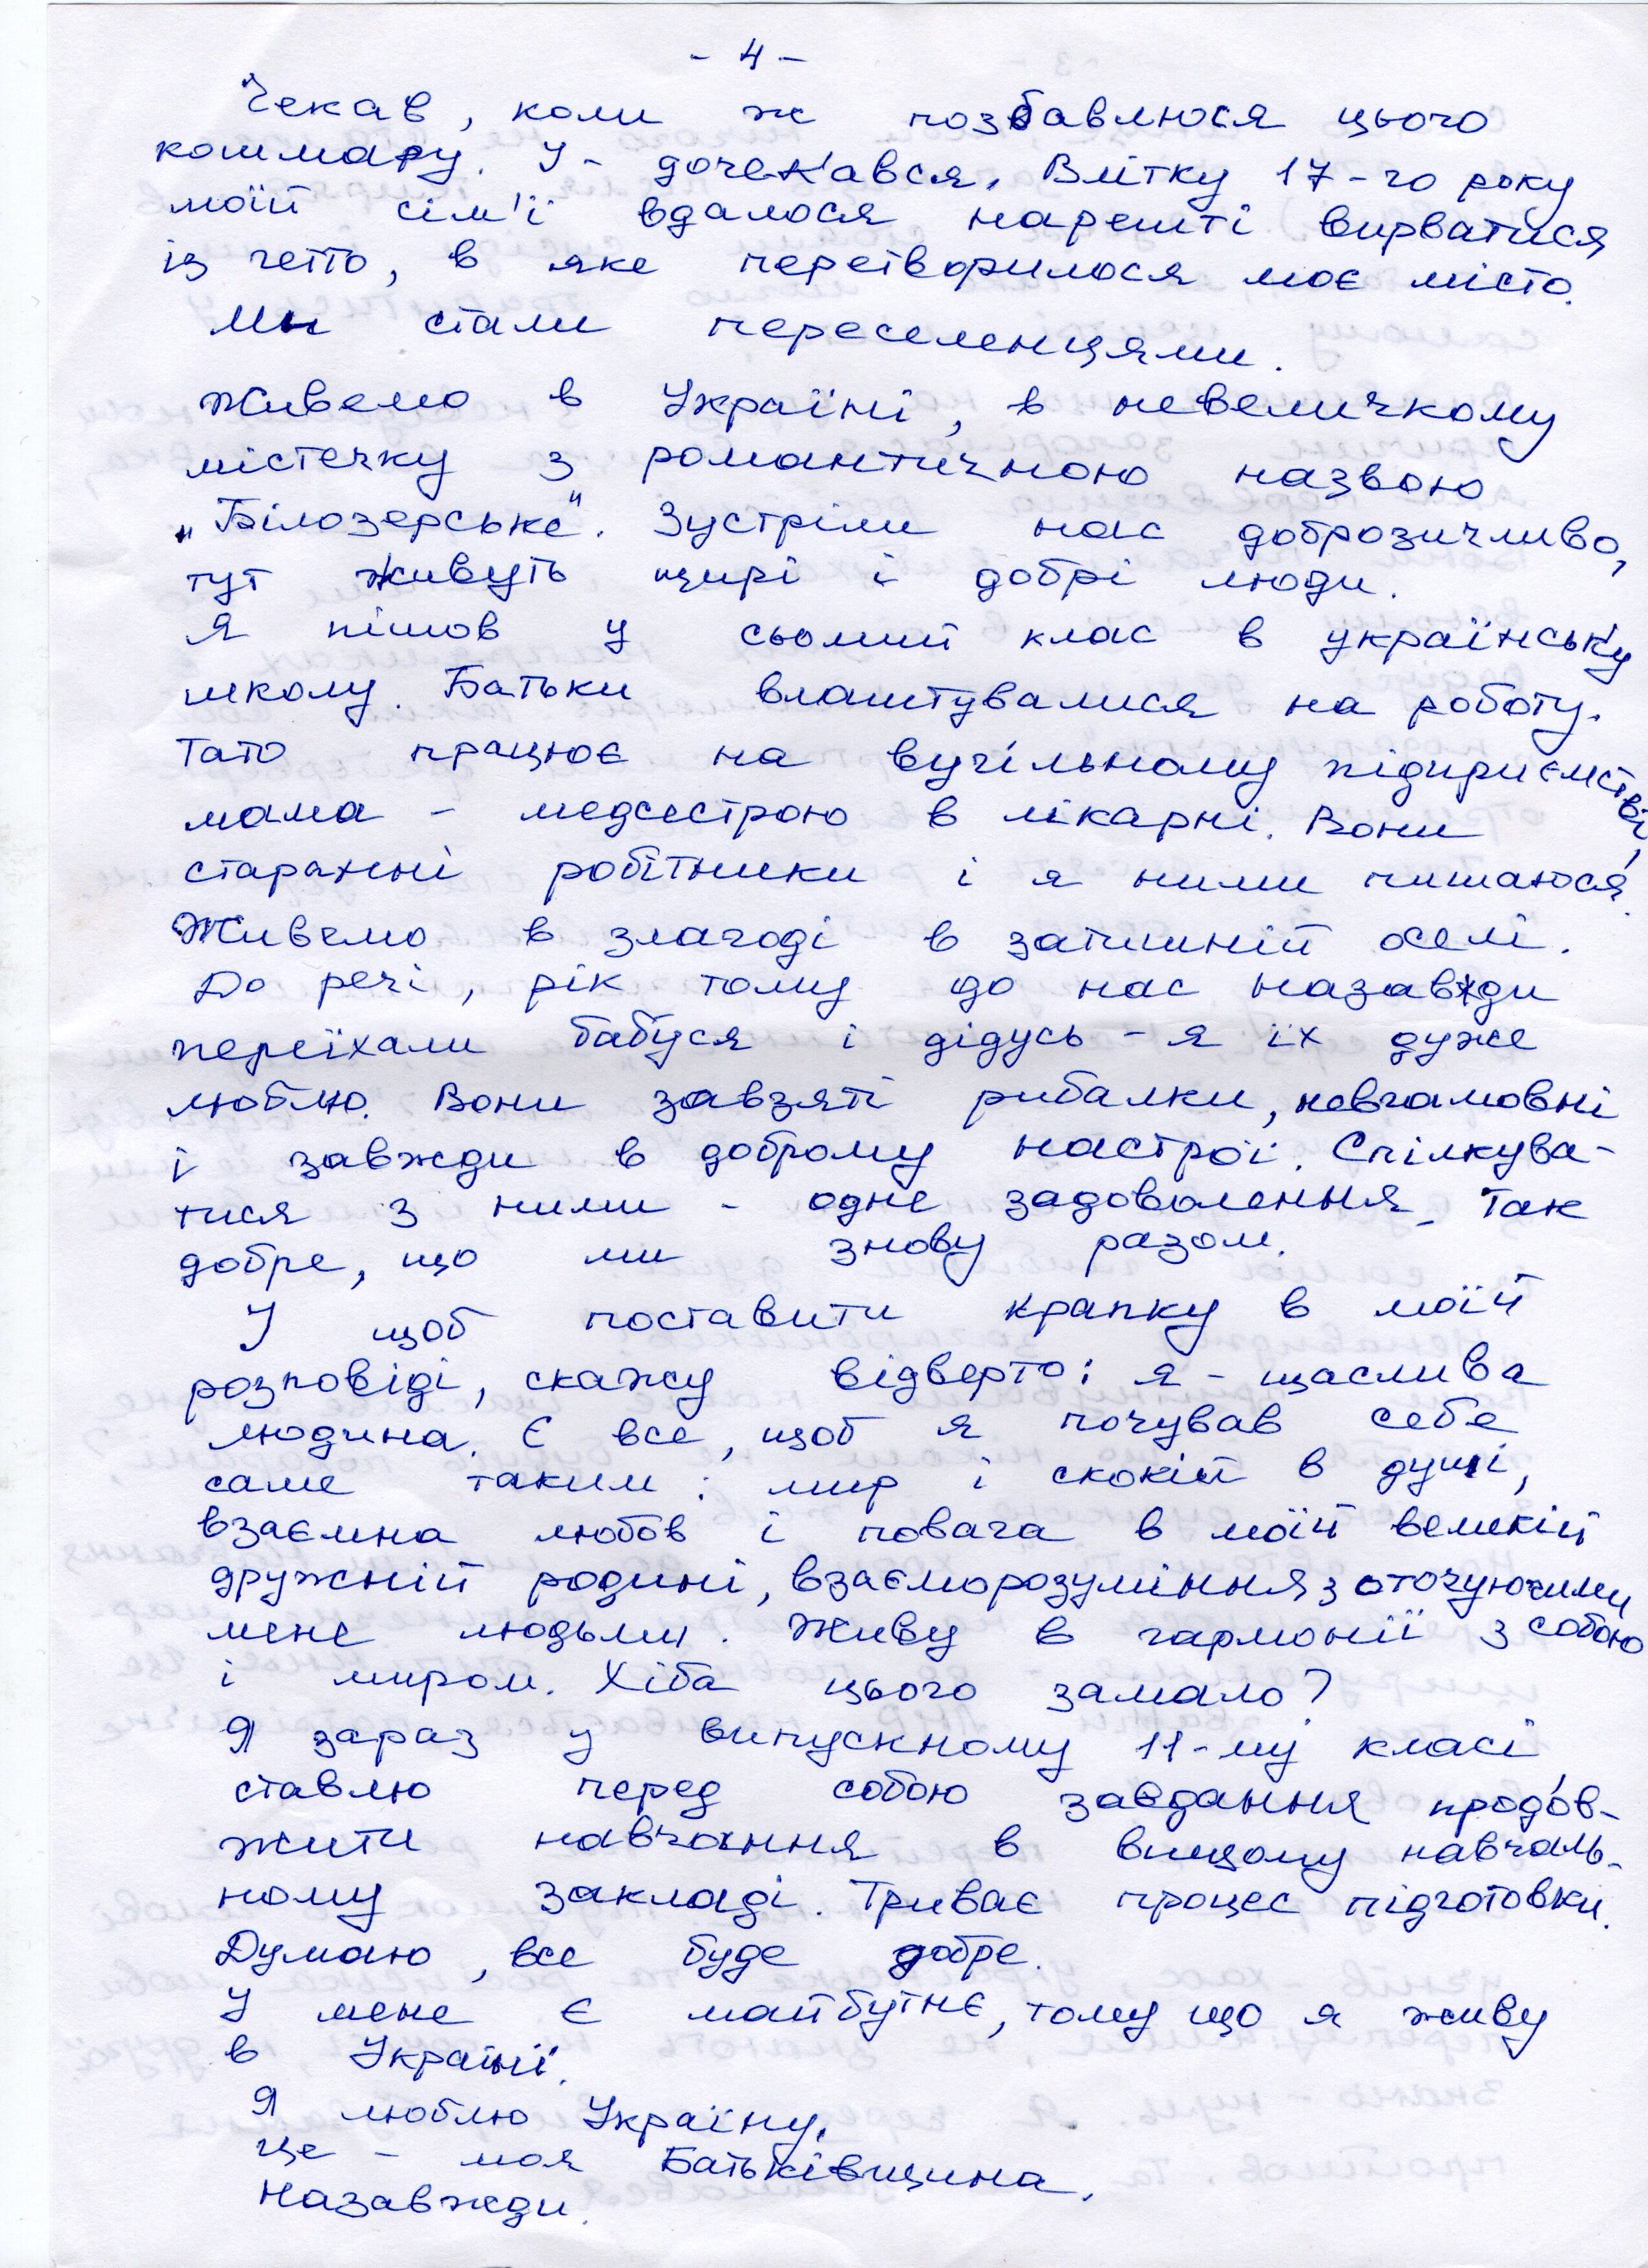 - 4 -
Чекав, коли ж позбавлюся цього
кошмару. І - дочекався. Влітку 17-го року
моїй сім'ї вдалося нарешті вирватися
із гетто, в яке перетворилося моє місто.
Ми стали переселенцями.
Живемо в Україні, в невеличкому
містечку з романтичною назвою
„Білозерське". Зустріли нас доброзичливо,
тут живуть щирі і добрі люди.
Я пішов у сьомий клас в українську
школу. Батьки влаштувалися на роботу.
Тато працює на вугільному підприємстві,
мама - медсестрою в лікарні. Вони
старанні робітники і я ними пишаюся.
Живемо в злагоді в затишній оселі.
До речі, рік тому до нас назавжди
переїхали бабуся і дідусь - я їх дуже
люблю. Вони завзяті рибалки, невгамовні
і завжди в доброму настрої. Спілкува-
тися з ними - одне задоволення. Так
добре, що ми знову разом.
І щоб поставити крапку в моїй
розповіді, скажу відверто: я - щаслива
людина. Є все, щоб я почував себе
саме таким: мир і спокій в душі,
взаємна любов і повага в моїй великій
дружній родині, взаєморозуміння з оточуючими
мене людьми. Живу в гармонії з собою
і миром. Хіба цього замало?
Я зараз у випускному 11-му класі,
ставлю перед собою завдання продов-
жити навчання в вищому навчаль-
ному закладі. Триває процес підготовки.
Думаю, все буде добре.
У мене є майбутнє, тому що я живу
в Україні.
Я люблю Україну.
Це - моя Батьківщина.
Назавжди.